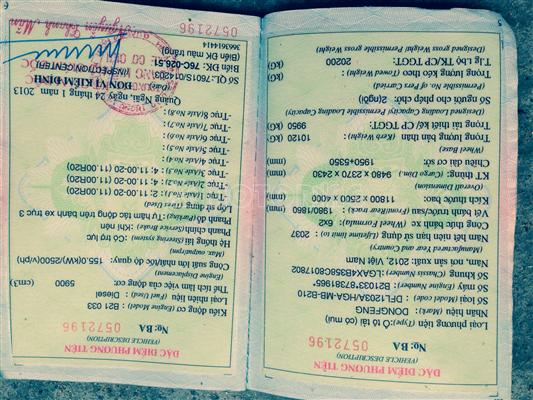 ĐẶC ĐIỂM PHƯƠNG TIỆN
(VEHICLE DESCRIPTION)
No: BA 0572196
Loại phương tiện (Type): Ô tô tải (có mui)
Nhãn hiệu (Mark): DONGFENG
Số loại (Model code): DFL1203A/HGA-MB-B210
Số máy (Engine Number): B21033*87831965*
Số khung (Chassis Number): LGAX4C35
Năm, nơi sản xuất: 2012, Việt Nam
(Manufactured Year and Country)
Năm hết niên hạn sử dụng (Lifetime limit to): 2037
Công thức bánh xe (Wheel Formula): 6x2
Vết bánh trước/sau (Front/Rear track): 1980/1860 (mm)
Kích thước bao: 11800 x 2500 x 4000 (mm)
(Overall Dimension)
KT thùng (Cargo Dim): 9480 x 2370 x 2430 (mm)
Chiều dài cơ sở: 1950+5350 (mm)
(Wheel Base)
Trọng lượng bản thân (Kerb weight): 10120 (KG)
Trọng tải thiết kế/ CP TGGT: 9950 (KG)
(Designed Loading Capacity/ Permissible Loading Capacity)
Số người cho phép chở: 2(ngồi)
(Permissible No. of Pers Carried)
Trọng lượng kéo theo (Towed Weight): (KG)
T.lg T.bộ TK/CP TGGT: 20200 (KG)
(Designed Permissible gross Weight)
5
ĐẶC ĐIỂM PHƯƠNG TIỆN
(VEHICLE DESCRIPTION)
No: BA 0572196
Kiểu động cơ (Engine model): B21 033
Loại nhiên liệu (Fuel Used): Diesel
Thể tích làm việc của động cơ: 5900 (cm3)
(Engine Displacement)
Công suất lớn nhất/tốc độ quay: 155,0(KW)/2500(v/ph)
(Maximum output/rpm)
Hệ thống lái (Steering system): Có trợ lực
Phanh chính (Service Brake): Khí nén
Phanh đỗ (Parking): Tự hãm tác động trên bánh trục 3
Lốp sử dụng (Tires Used)
Trục 1/Axle No.1: 2; 11.00-20 (11.00R20)
Trục 2/Axle No.2: 4; 11.00-20 (11.00R20)
Trục 3/Axle No.3: 4; 11.00-20 (11.00R20)
Trục 4/Axle No.4:
Trục 5/Axle No.5:
Trục 6/Axle No.6:
Trục 7/Axle No.7:
Trục 8/Axle No.8:
Quảng Ngãi, ngày 24 tháng 1 năm 2013
ĐƠN VỊ KIỂM ĐỊNH
(INSPECTION CENTER)
Số QL: 7601S/013476
Biển ĐK: 76C-026.51
(Biển ĐK màu trắng)
363661414
0572196
6